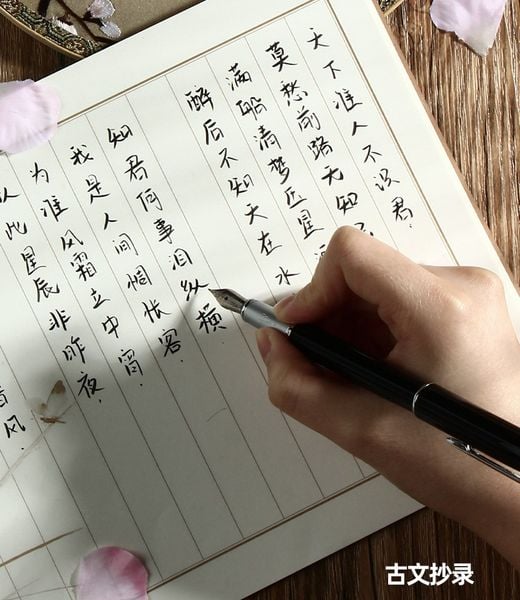 天下谁人不识君.
莫愁前路无知
满船清梦压星
醉后不知天在水
知君何事泪纵横
我是人间惆怅客.
为谁风霜立中宵.
此星辰非昨夜.
风.
古文抄录